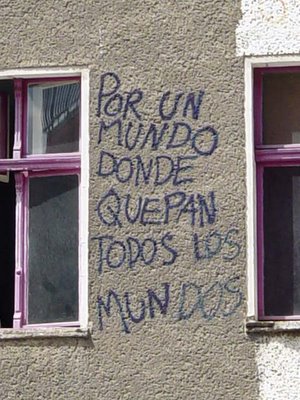 POR UN
MUNDO
DONDE
QUEPAN
TODOS LOS
MUNDOS